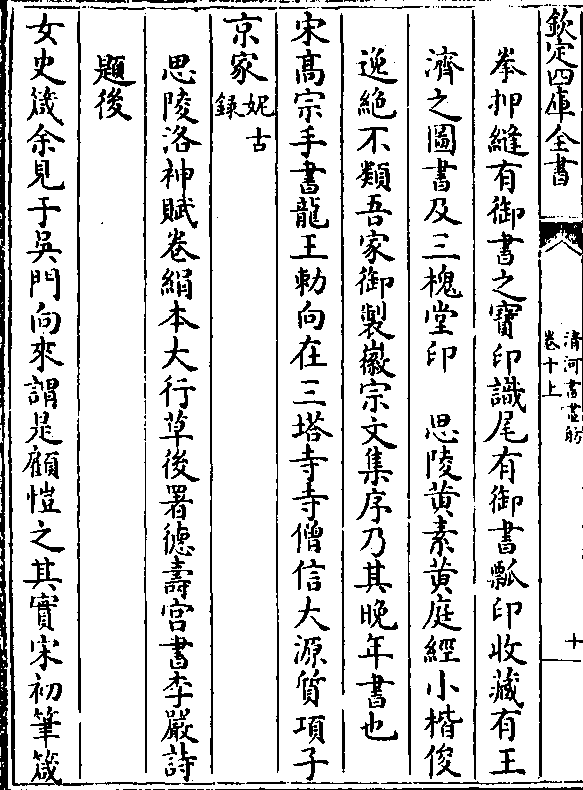 欽定四庫全書
清河書畫舫
卷十上
十
拳抑縫有御書之寶印識尾有御書瓢印收藏有王
濟之圖書及三槐堂印　思陵黄素黄庭經小楷俊
逸絶不類吾家御製徽宗文集序乃其晚年書也
宋髙宗手書龍王勅向在三塔寺寺僧信大源質項子
京家妮古録
思陵洛神賦卷絹本大行草後署徳壽宫書李嚴詩
題後
女史箴余見于吳門向來謂是顧愷之其實宋初筆箴